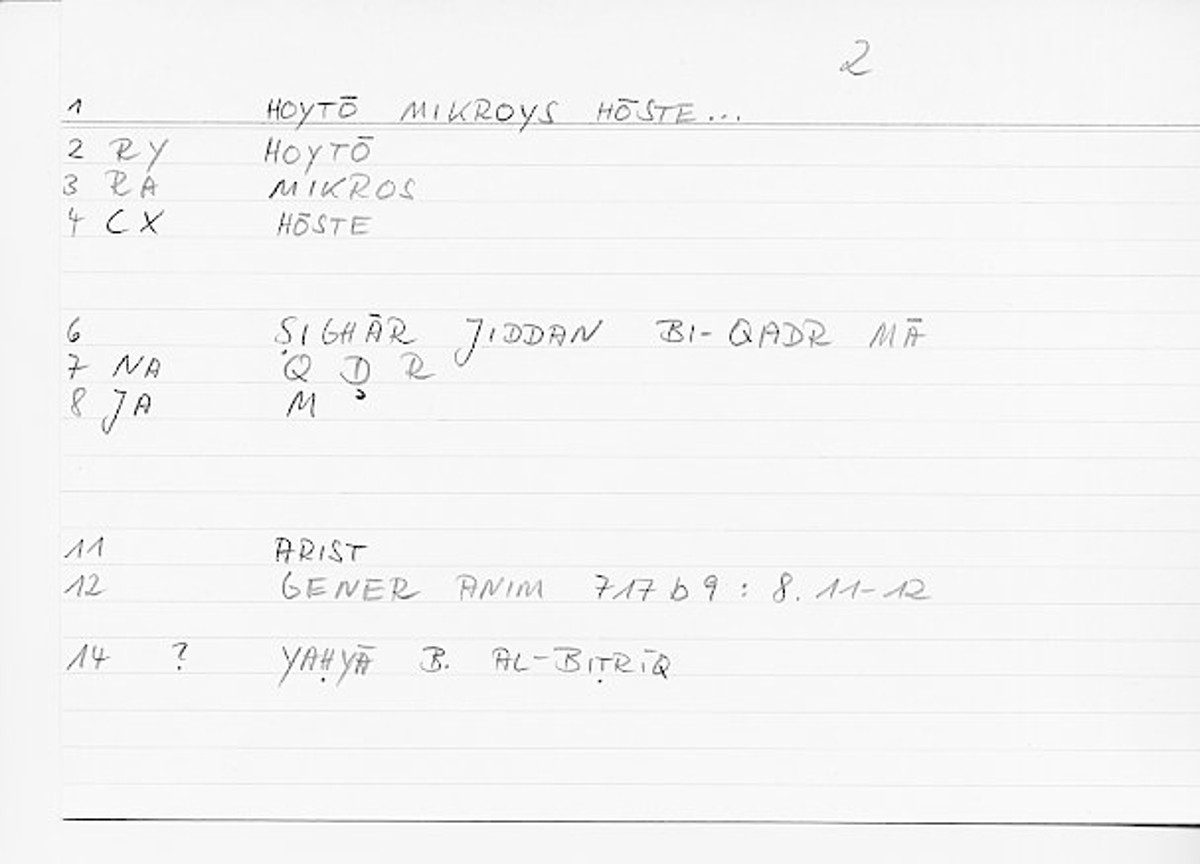 2
1 HOYTŌ MIKROYS HŌSTE...
2 RY HOYTŌ
3 RA MIKROS
4 CX HŌSTE
6 ṢIGHĀR JIDDAN BI-QADR MĀ
7 NA Q D R
8 JA M ɔ
11 ARIST
12 GENER ANIM 717 b 9 : 8. 11-12
14 ? YAḤYĀ B. AL-BIṬRĪQ